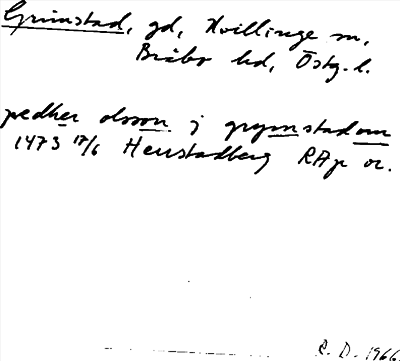 Grimstad, gd, Kvillinge sn,
Bråbo hd, Östg. l.
pedher olsson j grymstadom
1473 17/6 Herrstadberg RAp or.
R. D. 1966